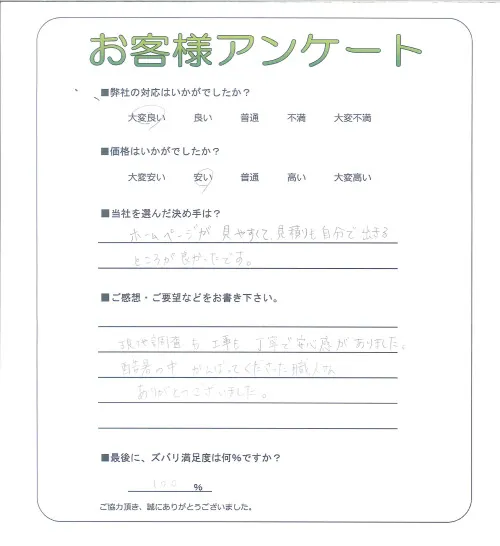 お客様アンケート
■弊社の対応はいかがでしたか？
大変良い 良い 普通 不満 大変不満
■価格はいかがでしたか？
大変安い 安い 普通 高い 大変高い
■当社を選んだ決め手は？
ホームページが 見やすくて、見積りも自分で出きる
ところが良かったです。
■ご感想・ご要望などをお書き下さい。
現地調査も 工事も 丁寧で安心感がありました。
酷暑の中 がんばってくださった職人さん
ありがとうございました。
■最後に、ズバリ満足度は何％ですか？
100 %
ご協力頂き、誠にありがとうございました。